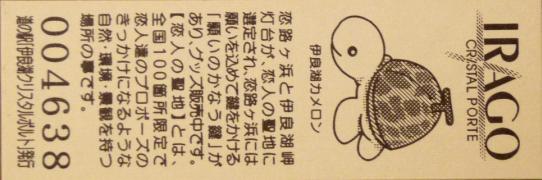 IRAGO
CRYSTAL PORTE
伊良湖カメロン
恋路ヶ浜と伊良湖岬
灯台が、恋人の聖地に
選定され、恋路ヶ浜には
願いを込めて鍵をかける
「願いのかなう鍵」が
あり、グッズ販売中です。
【恋人の聖地】とは、
全国100箇所限定で
恋人達のプロポーズの
きっかけになるような
自然・環境・景観を持つ
場所の事です。
004638
道の駅伊良湖クリスタルポルト発行